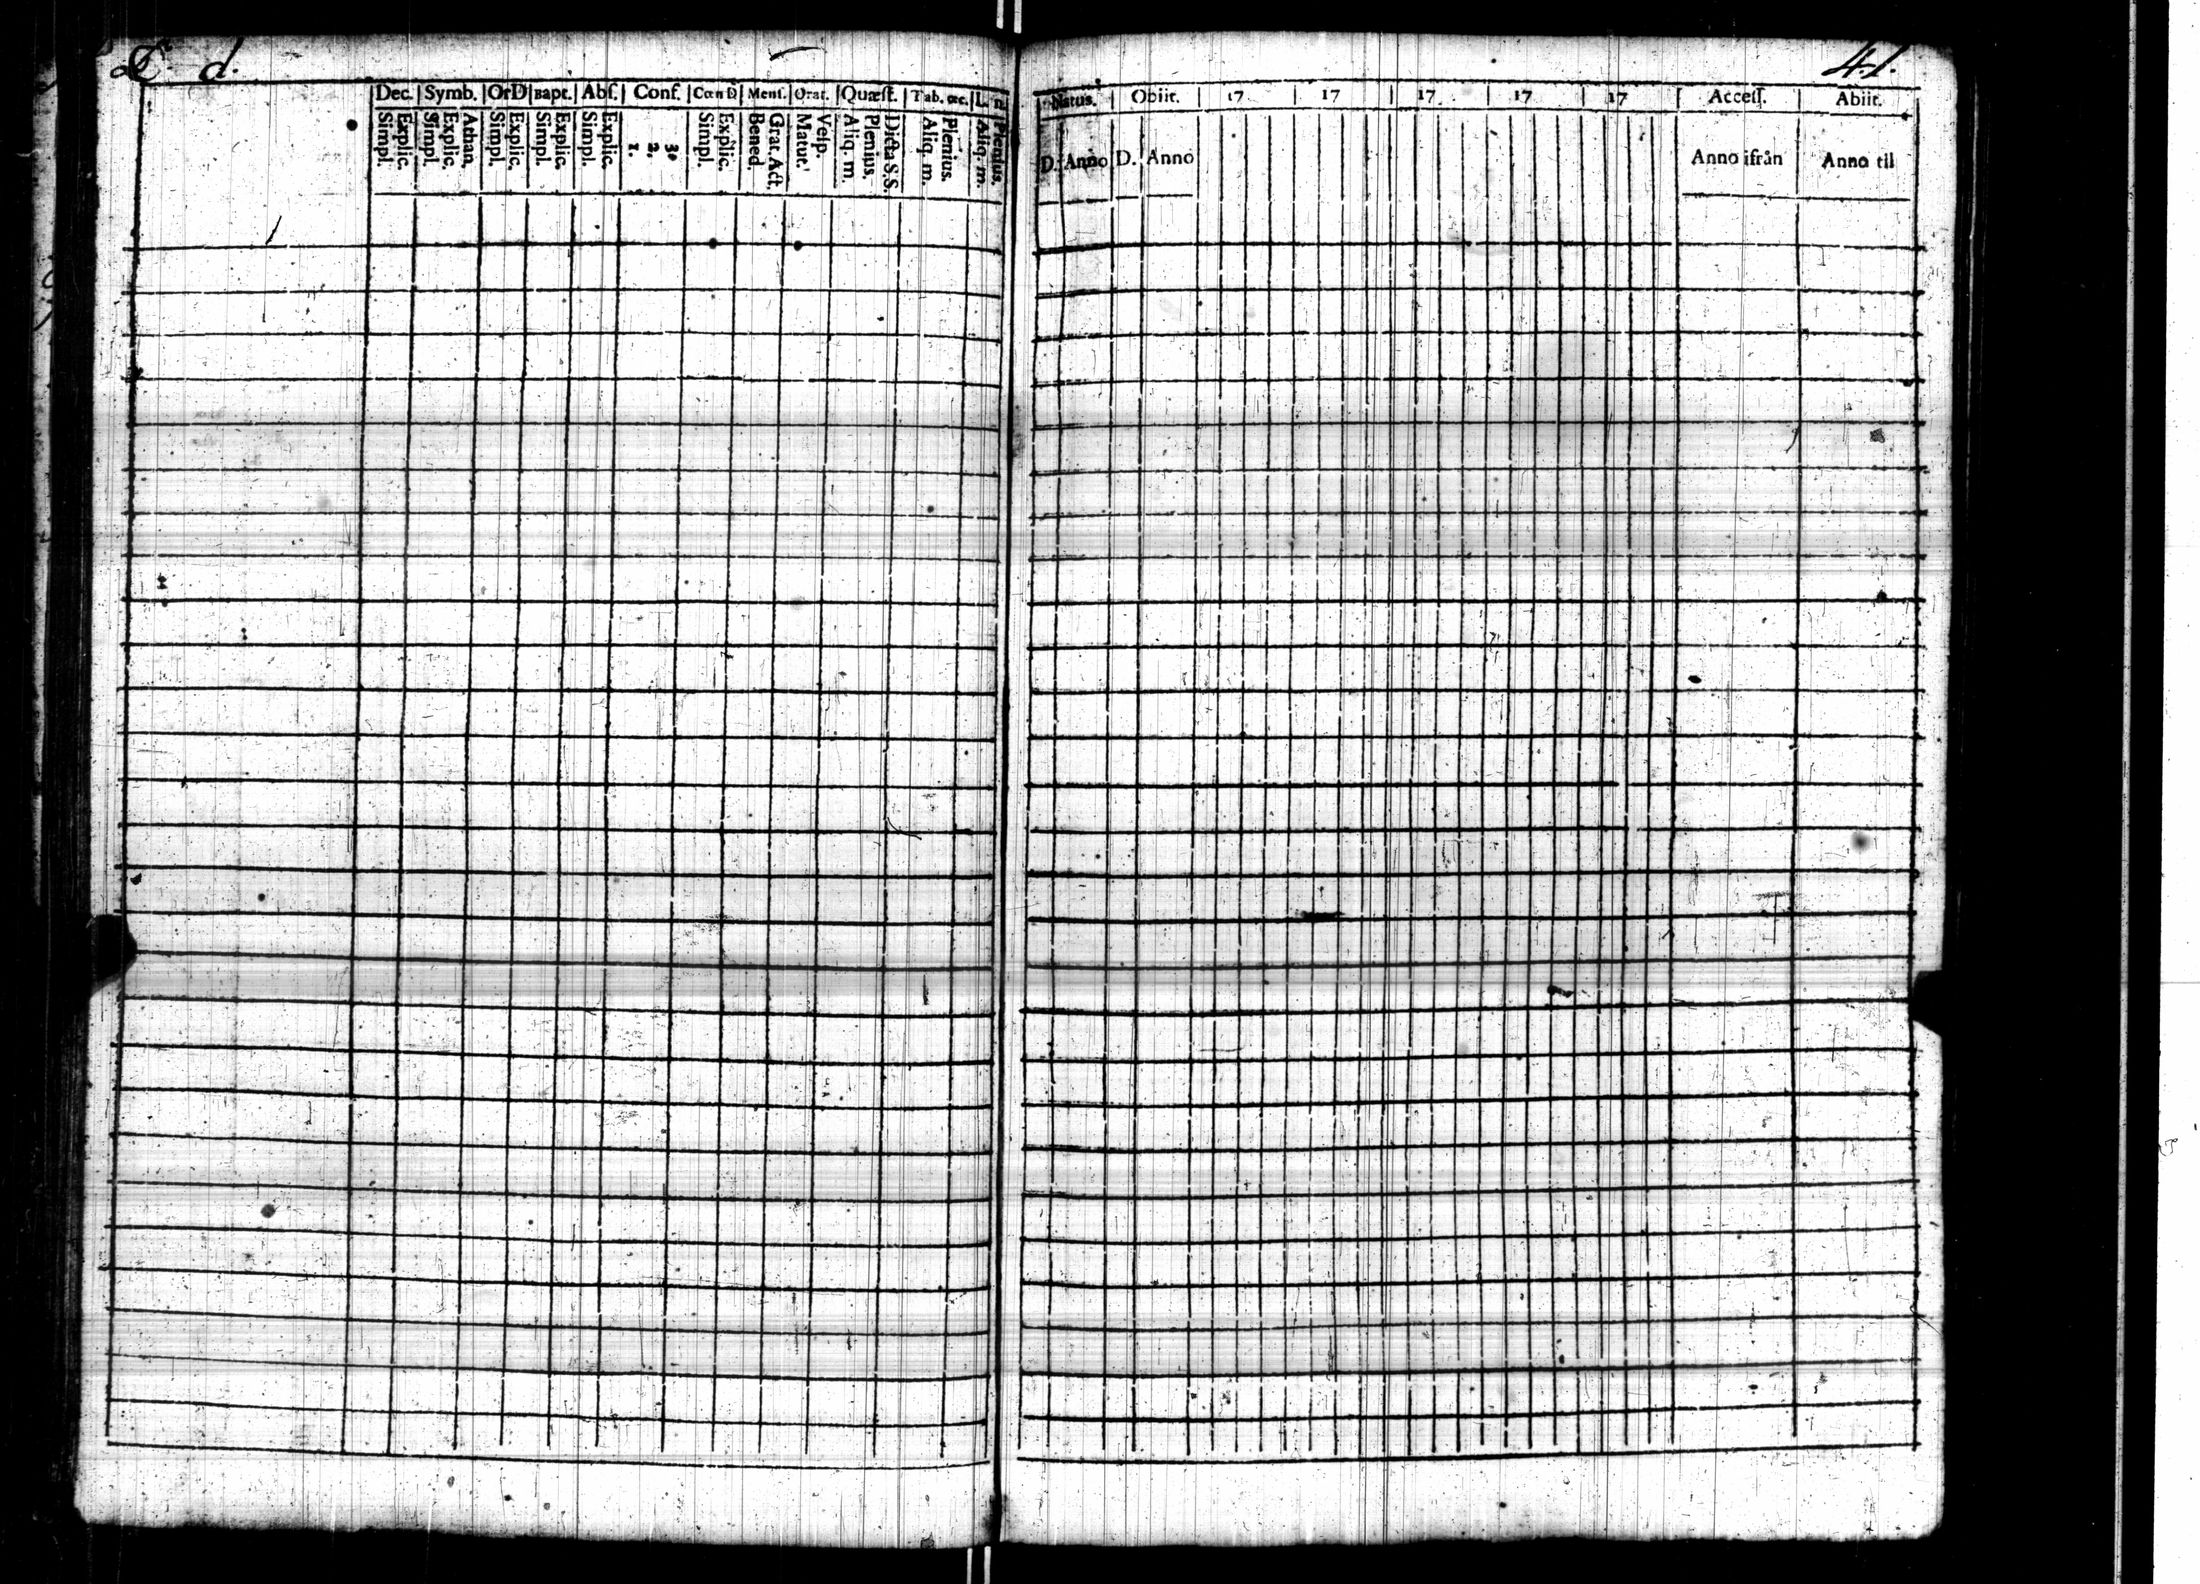 d. 41.
Dec. Symb. OrD Bapt. Abſ. Conſ. CœnD Menſ. Orat. Quæſt. Tab. œc. L. n.
Simpl. Explic. Simpl. Explic. Athan. Simpl. Explic. Simpl. Explic. Simpl. Explic. 1. 2. 3. Simpl. Explic. Bened. Grat. Act. Matut. Veſp. Aliq. m. Plenius. Dicta S.S. Aliq. m. Plenius. Aliq. m. Plenius.
Natus. Obiit. 17 17 17 17 17 Acceſſ. Abiit.
D. Anno D. Anno Anno ifrån Anno til